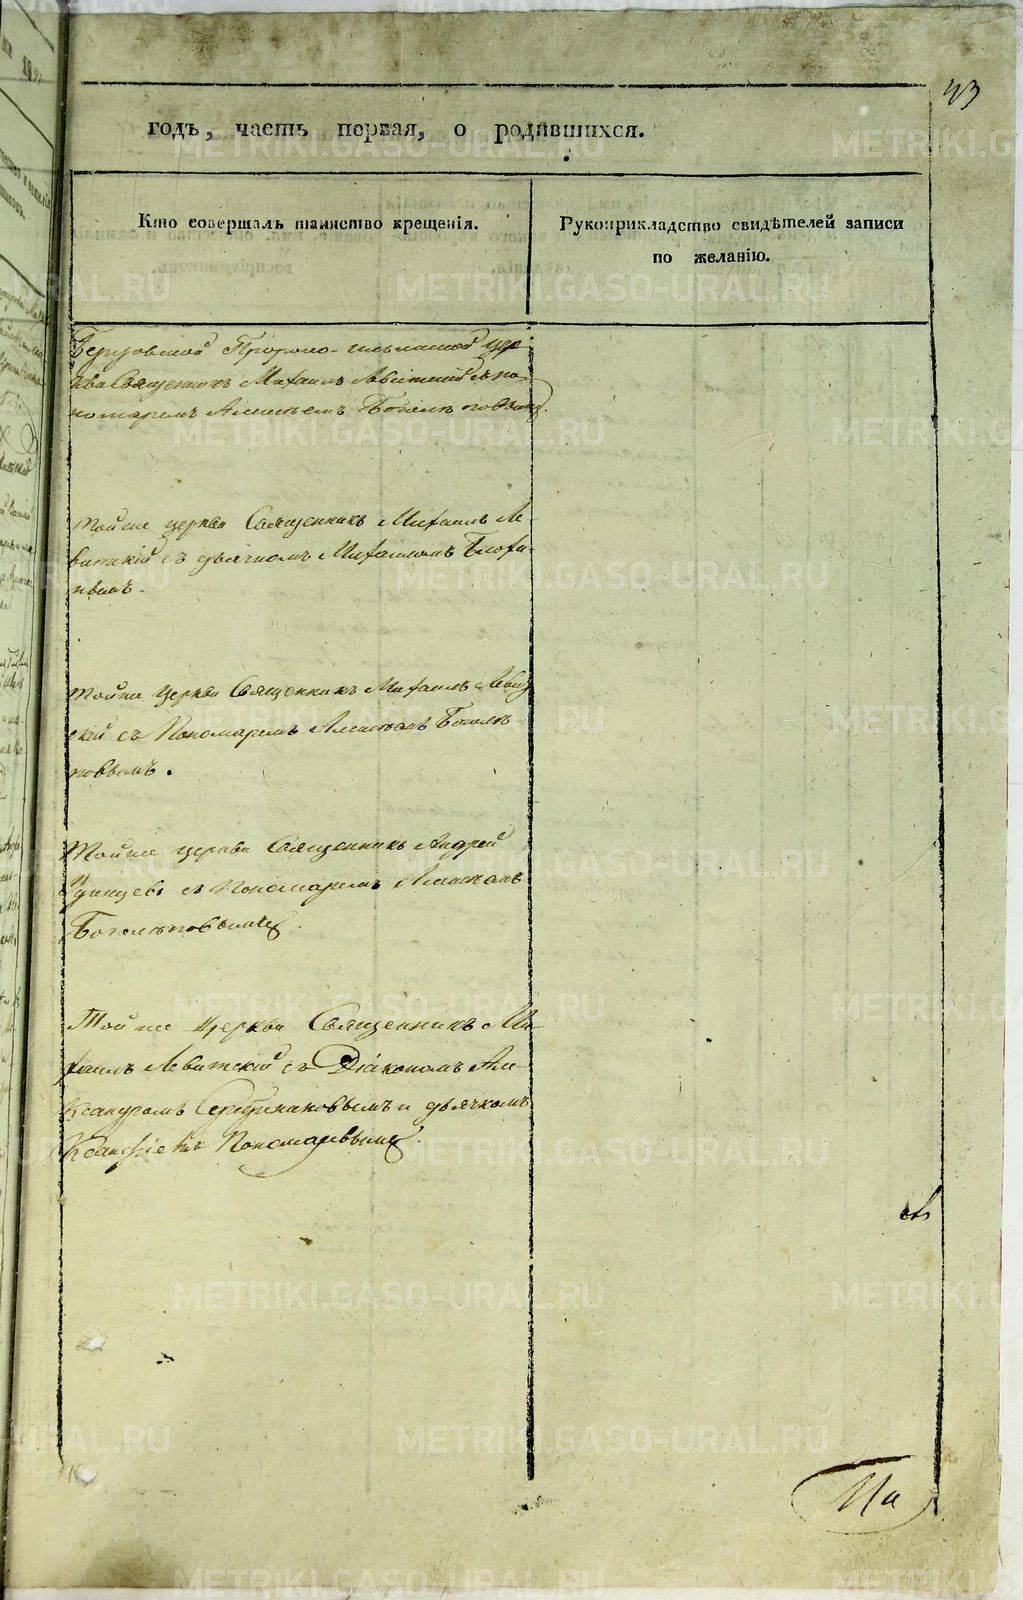 43
годъ, часть первая, о родившихся.
Кто совершалъ таинство крещенія.
Рукоприкладство свидѣтелей записи
по желанію.
Пророко-Ильинской цер
кви Священникъ Михаилъ Левитский съ по-
номаремъ Алексѣемъ Боголѣповымъ.
Той же церкви Священникъ Михаилъ Ле-
витскій съ дьячкомъ Михаиломъ
Той же церкви Священникъ Михаилъ Левит
скій съ Пономаремъ Алексѣемъ Боголѣ-
повымъ.
Той же церкви Священникъ Андрей
Удинцевъ съ Пономаремъ Алексѣемъ
Боголѣповымъ.
Той же Церкви Священникъ Ми-
хаилъ Левитскій съ Діакономъ Але-
ксандромъ Серебрениковымъ и дьячкомъ
Пономаревымъ.
METRIKI.GASO-URAL.RU